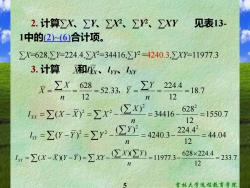 2. 计算∑X、∑Y、∑X²、∑Y²、∑XY 见表13-
1中的(2)~(6)合计项。
∑X=628,∑Y=224.4,∑X²=34416,∑Y²=4240.3,∑XY=11977.3
3. 计算 和lXX、lYY、lXY
X̄ = ∑X/n = 628/12 = 52.33, Ȳ = ∑Y/n = 224.4/12 = 18.7
lXX = ∑(X − X̄)² = ∑X² − (∑X)²/n = 34416 − 628²/12 = 1550.7
lYY = ∑(Y − Ȳ)² = ∑Y² − (∑Y)²/n = 4240.3 − 224.4²/12 = 44.04
lXY = ∑(X − X̄)(Y − Ȳ) = ∑XY − (∑X)(∑Y)/n = 11977.3 − 628×224.4/12 = 233.7
5